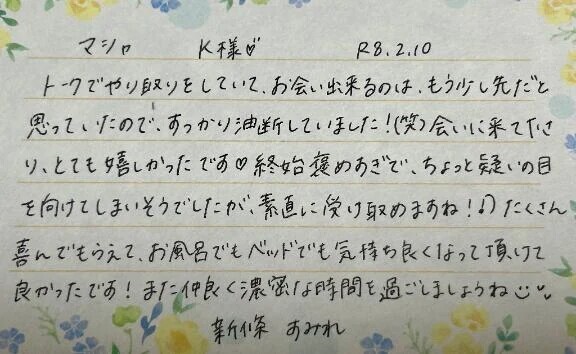 マシロ K様♡ R8.2.10
トークでやり取りをしていて、お会い出来るのは、もう少し先だと
思っていたので、すっかり油断していました!(笑)会いに来て下さ
り、とても嬉しかったです♡終始褒めあぎで、ちょっと疑いの目
を向けてしまいそうでしたが、素直に受け取めますね!♪)たくさん
喜んでもらえて、お風呂でもベッドでも気持ち良くなって頂けて
良かったです!また仲良く濃密な時間を過ごしましょうね
新條 すみれ